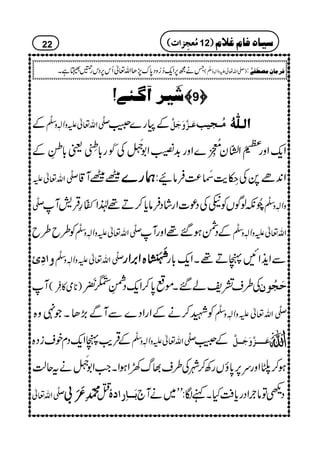 سیاہ فام غلام (12 معجزات) 22
فرمانِ مصطفےٰ (صلی اللہ تعالیٰ علیہ واٰلہ وسلم) جس نے مجھ پر ایک بار دُرُودِ پاک پڑھا اللہ تعالیٰ اُس پر دس رحمتیں بھیجتا ہے۔
﴿9﴾ شیر آ گئے!
اللہ مُجِیب عَزَّوَجَلَّ کے پیارے حبیب صلی اللہ تعالیٰ علیہ واٰلہ وسلم کے
ایک اور عظیم الشان مُعْجِزے اور بدنصیب ابوالجہل کی کور باطنی یعنی باطن کے
اندھے پن کی حکایت سماعت فرمائیے: ہمارے میٹھے میٹھے آقا صلی اللہ تعالیٰ علیہ
واٰلہ وسلم چونکہ لوگوں کو نیکی کی دعوت ارشاد فرمایا کرتے تھے لہٰذا کفارِ قریش آپ صلی
اللہ تعالیٰ علیہ واٰلہ وسلم کے دشمن ہو گئے تھے اور آپ صلی اللہ تعالیٰ علیہ واٰلہ وسلم کو طرح طرح
سے ایذائیں پہنچاتے تھے۔ ایک بار شہنشاہِ ابرار صلی اللہ تعالیٰ علیہ واٰلہ وسلم وادیٔ
حَجُون کی طرف تشریف لے گئے۔ موقع پا کر ایک دشمنِ ستمگر نَضْر (نامی کافر) آپ
صلی اللہ تعالیٰ علیہ واٰلہ وسلم کو شہید کرنے کے ارادے سے آگے بڑھا۔ جونہی وہ
اللہ عَزَّوَجَلَّ کے حبیب صلی اللہ تعالیٰ علیہ واٰلہ وسلم کے قریب پہنچا ایک دم خوف زدہ
ہو کر پلٹا اور سر پر پاؤں رکھ کر شہر کی طرف بھاگ کھڑا ہوا۔ ابوجہل نے یہ حالت
دیکھی تو ماجرا دریافت کیا۔ کہنے لگا: ’’میں نے آج بارادۂ قتل محمدِ عَرَبی صلی اللہ تعالیٰ